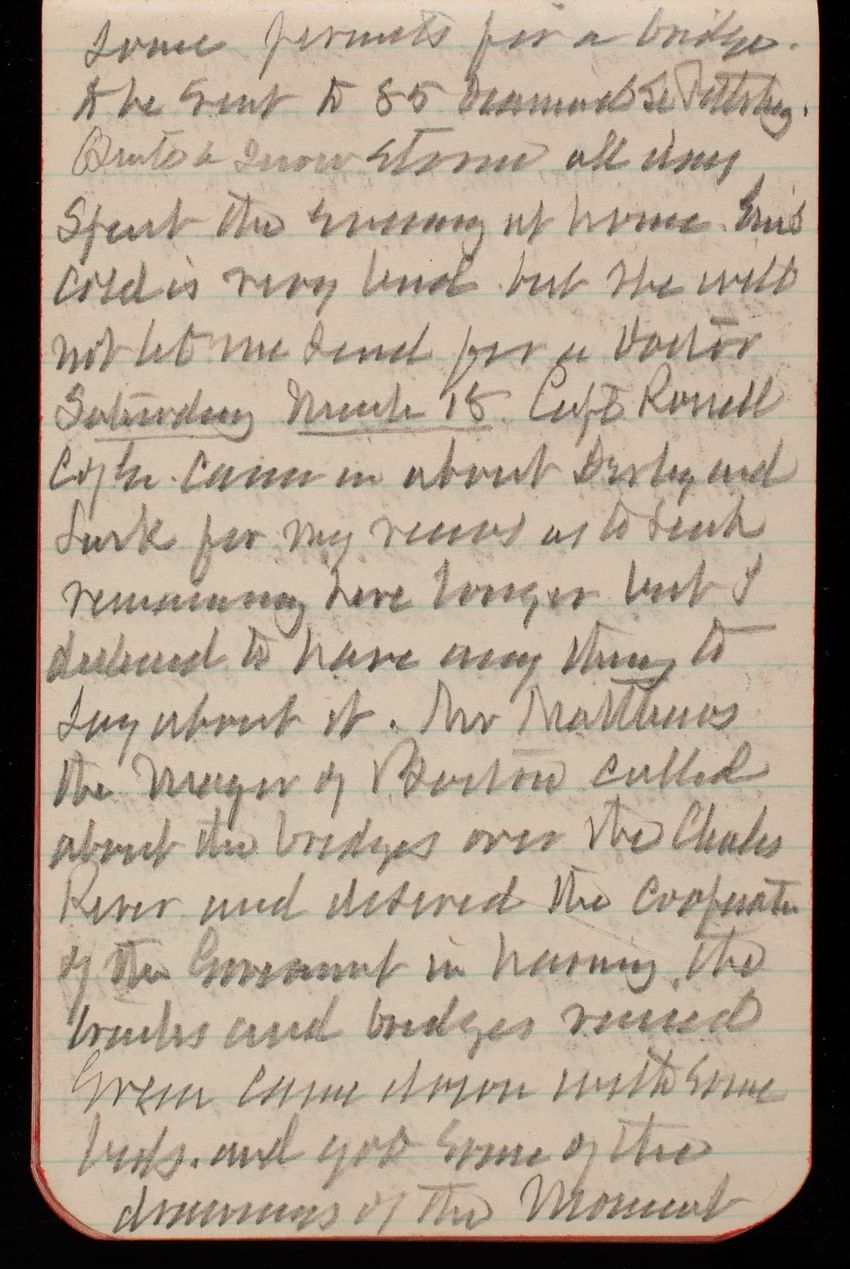 some permits for a bridge.
to be sent to 85 Diamond St Pittsburg.
Quite a snow storm all day
Spent the evening at home. Em's
cold is very bad but she will
not let me send for a Doctor
Saturday March 18 Capt Rossell
Coffe. came in about Derby and
for my views as to
remaining here longer but I
declined to have any thing to
say about it. Mr Matthews
the Mayor of Boston called
about the bridges over the Charles
River and desired the cooperation
of the Goverment in having the
and bridges raised
Green came down with some
bids. and got some of the
drawings of the Monument